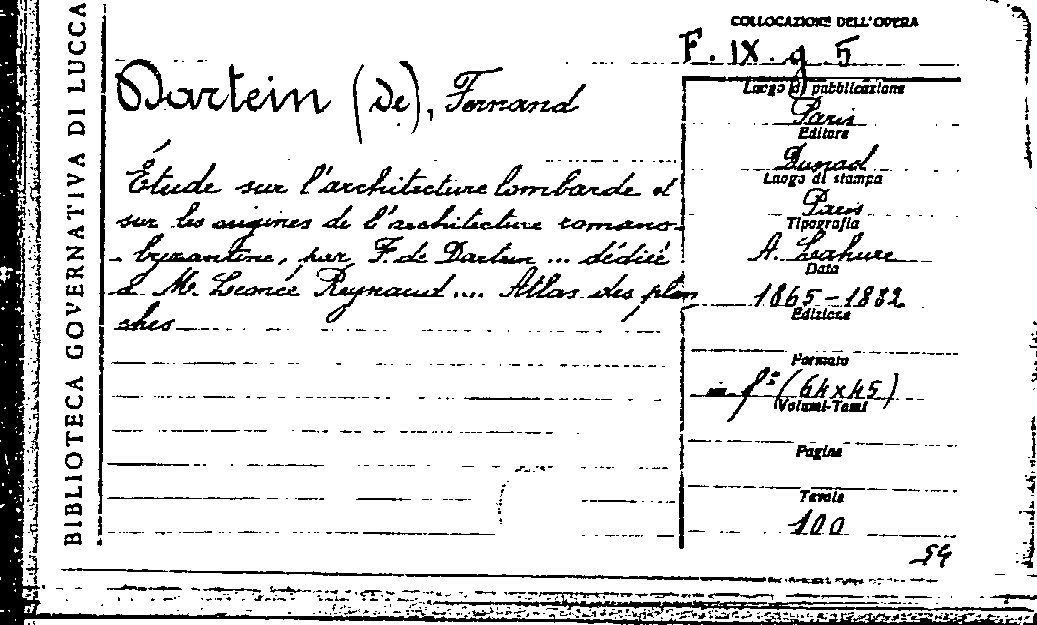 BIBLIOTECA GOVERNATIVA DI LUCCA
COLLOCAZIONE DELL'OPERA
F. IX. g 5
Dartein (De), Fernand
Étude sur l'architecture lombarde et
sur les origines de l'architecture romano-
-byzantine, par F. de Dartein ... dédiée
à M. Léonce Reynaud .... Atlas des plan
ches
Luogo di pubblicazione
Paris
Editore
Dunod
Luogo di stampa
Paris
Tipografia
A. Lahure
Data
1865-1882
Edizione
Formato
in f° (64x45)
Volumi-Tomi
Pagine
Tavole
100
54